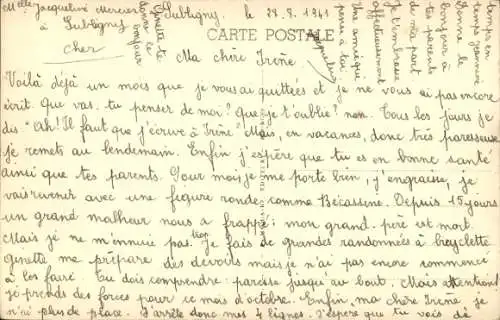 Mlle Jacqueline Mercier
à Subligny
Cher
Subligny, le 28.8.1941
CARTE POSTALE
Ma chère Irène
Voilà déjà un mois que je vous ai quittées et je ne vous ai pas encore
écrit. Que vas-tu penser de moi? Que je t'oublie? non. Tous les jours je
dis "Ah! Il faut que j'écrive à Irène" Mais, en vacances, donc très paresseuse
je remets au lendemain. Enfin j'espère que tu es en bonne santé
ainsi que tes parents. Pour moi je me porte bien, j'engraisse, je
vais revenir avec une figure ronde comme Bécassine. Depuis 15 jours
un grand malheur nous a frappé: mon grand-père est mort.
Mais je ne m'ennuie pas. Je fais de grandes randonnées à bicyclette
ginette me prépare des devoirs mais je n'ai pas encore commencé
à les faire. Tu dois comprendre: paresse jusqu'au bout. Mais attention!
je prends des forces pour ce mois d'octobre. Enfin, ma chère Irène, je
n'ai plus de place. J'arrête donc mes 4 lignes. J'espère que tu vois de
temps en
temps
Donne le
bonjour à
tes parents
de ma part
Je t'embrasse
affectueusement
Une amie qui
pense à toi.
Jacqueline
Ginette te
donne le
bonjour